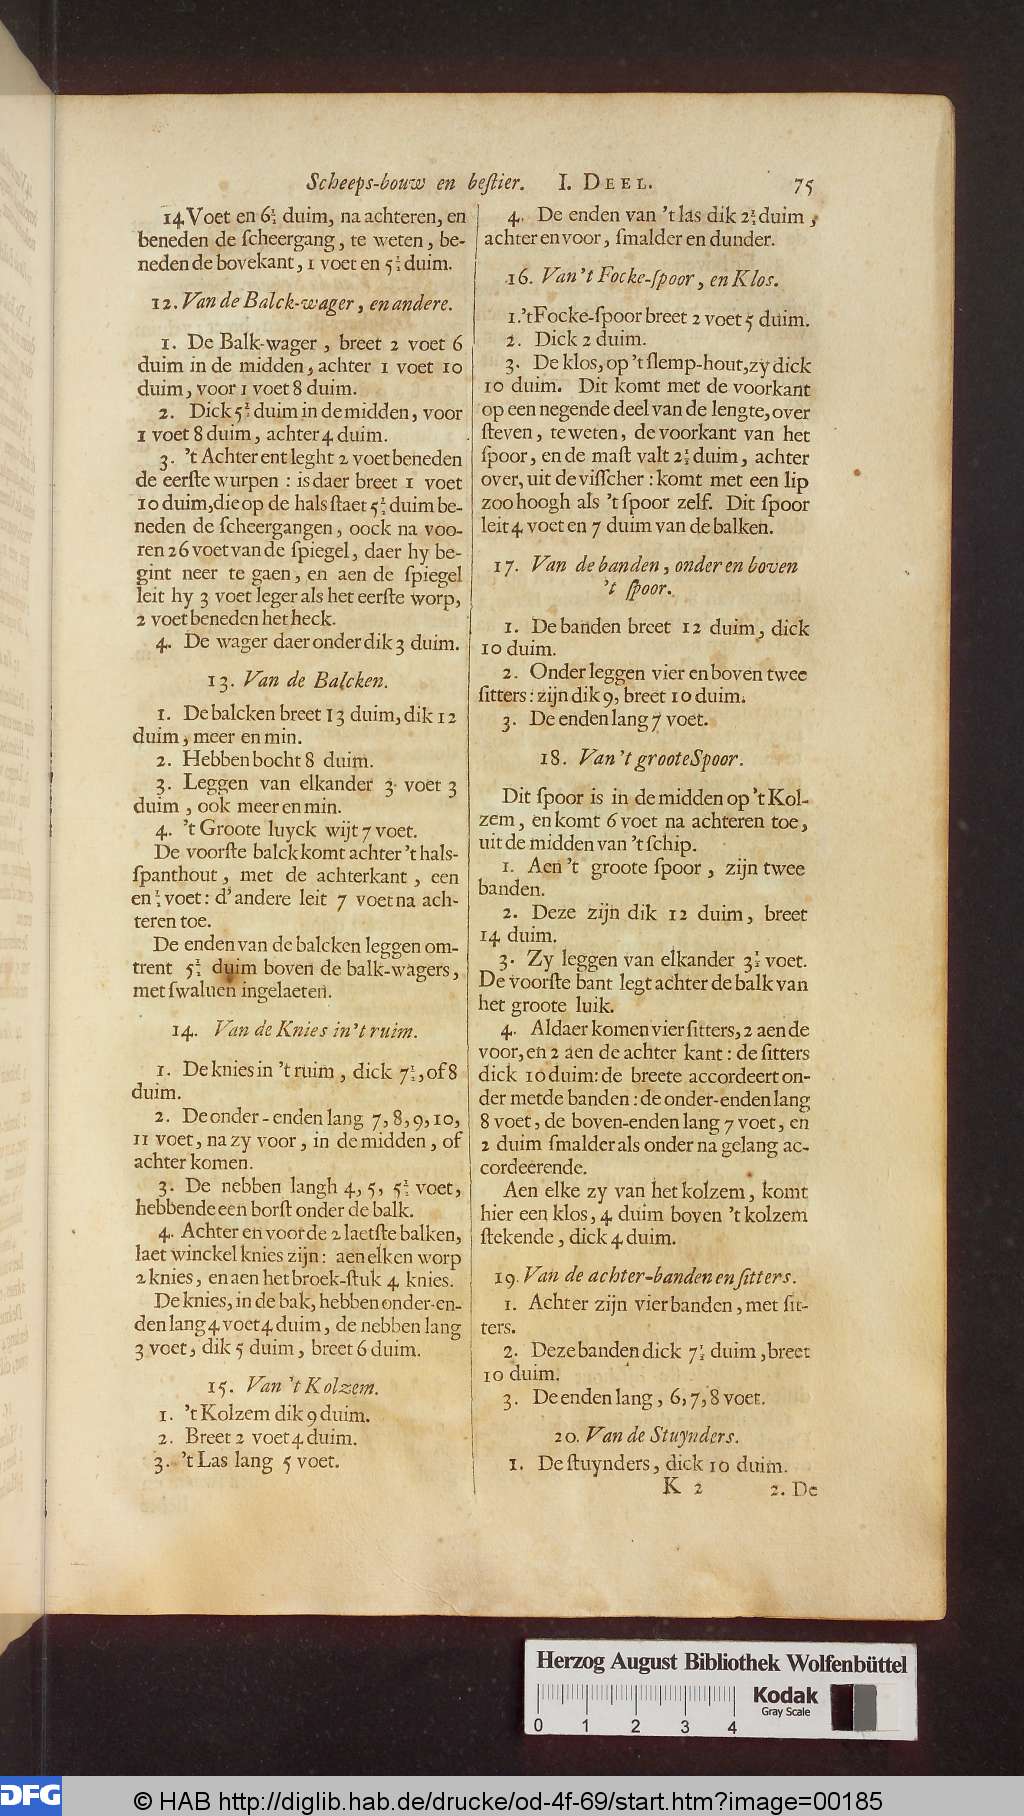 Scheeps-bouw en beſtier. I. DEEL. 75
14 Voet en 6½ duim, na achteren, en
beneden de ſcheergang, te weten, be-
neden de bovekant, 1 voet en 5½ duim.
12. Van de Balck-wager, en andere.
1. De Balk-wager, breet 2 voet 6
duim in de midden, achter 1 voet 10
duim, voor 1 voet 8 duim.
2. Dick 5½ duim in de midden, voor
1 voet 8 duim, achter 4 duim.
3. 't Achter ent leght 2 voet beneden
de eerſte wurpen : is daer breet 1 voet
10 duim, die op de hals ſtaet 5½ duim be-
neden de ſcheergangen, oock na voo-
ren 26 voet van de ſpiegel, daer hy be-
gint neer te gaen, en aen de ſpiegel
leit hy 3 voet leger als het eerſte worp,
2 voet beneden het heck.
4. De wager daer onder dik 3 duim.
13. Van de Balcken.
1. De balcken breet 13 duim, dik 12
duim, meer en min.
2. Hebben bocht 8 duim.
3. Leggen van elkander 3 voet 3
duim, ook meer en min.
4. 't Groote luyck wijt 7 voet.
De voorſte balck komt achter 't hals-
ſpanthout, met de achterkant, een
en ½ voet: d'andere leit 7 voet na ach-
teren toe.
De enden van de balcken leggen om-
trent 5½ duim boven de balk-wagers,
met ſwaluen ingelaeten.
14. Van de Knies in 't ruim.
1. De knies in 't ruim, dick 7½, of 8
duim.
2. De onder-enden lang 7, 8, 9, 10,
11 voet, na zy voor, in de midden, of
achter komen.
3. De nebben langh 4, 5, 5½ voet,
hebbende een borſt onder de balk.
4. Achter en voor de 2 laetſte balken,
laet winckel knies zijn: aen elken worp
2 knies, en aen het broek-ſtuk 4 knies.
De knies, in de bak, hebben onder-en-
den lang 4 voet 4 duim, de nebben lang
3 voet, dik 5 duim, breet 6 duim.
15. Van 't Kolzem.
1. 't Kolzem dik 9 duim.
2. Breet 2 voet 4 duim.
3. 't Las lang 5 voet.
4. De enden van 't las dik 2½ duim,
achter en voor, ſmalder en dunder.
16. Van 't Focke-ſpoor, en Klos.
1. 't Focke-ſpoor breet 2 voet 5 duim.
2. Dick 2 duim.
3. De klos, op 't ſlemp-hout, zy dick
10 duim. Dit komt met de voorkant
op een negende deel van de lengte, over
ſteven, te weten, de voorkant van het
ſpoor, en de maſt valt 2½ duim, achter
over, uit de viſſcher : komt met een lip
zoo hoogh als 't ſpoor zelf. Dit ſpoor
leit 4 voet en 7 duim van de balken.
17. Van de banden, onder en boven
't ſpoor.
1. De banden breet 12 duim, dick
10 duim.
2. Onder leggen vier en boven twee
ſitters: zijn dik 9, breet 10 duim.
3. De enden lang 7 voet.
18. Van 't groote Spoor.
Dit ſpoor is in de midden op 't Kol-
zem, en komt 6 voet na achteren toe,
uit de midden van 't ſchip.
1. Aen 't groote ſpoor, zijn twee
banden.
2. Deze zijn dik 12 duim, breet
14 duim.
3. Zy leggen van elkander 3½ voet.
De voorſte bant legt achter de balk van
het groote luik.
4. Aldaer komen vier ſitters, 2 aen de
voor, en 2 aen de achter kant : de ſitters
dick 10 duim: de breete accordeert on-
der met de banden : de onder-enden lang
8 voet, de boven-enden lang 7 voet, en
2 duim ſmalder als onder na gelang ac-
cordeerende.
Aen elke zy van het kolzem, komt
hier een klos, 4 duim boven 't kolzem
ſtekende, dick 4 duim.
19. Van de achter-banden en ſitters.
1. Achter zijn vier banden, met ſit-
ters.
2. Deze banden dick 7½ duim, breet
10 duim.
3. De enden lang, 6, 7, 8 voet.
20. Van de Stuynders.
1. De ſtuynders, dick 10 duim.
K 2 2. De
Herzog August Bibliothek Wolfenbüttel
Kodak
Gray Scale
0 1 2 3 4
DFG © HAB http://diglib.hab.de/drucke/od-4f-69/start.htm?image=00185